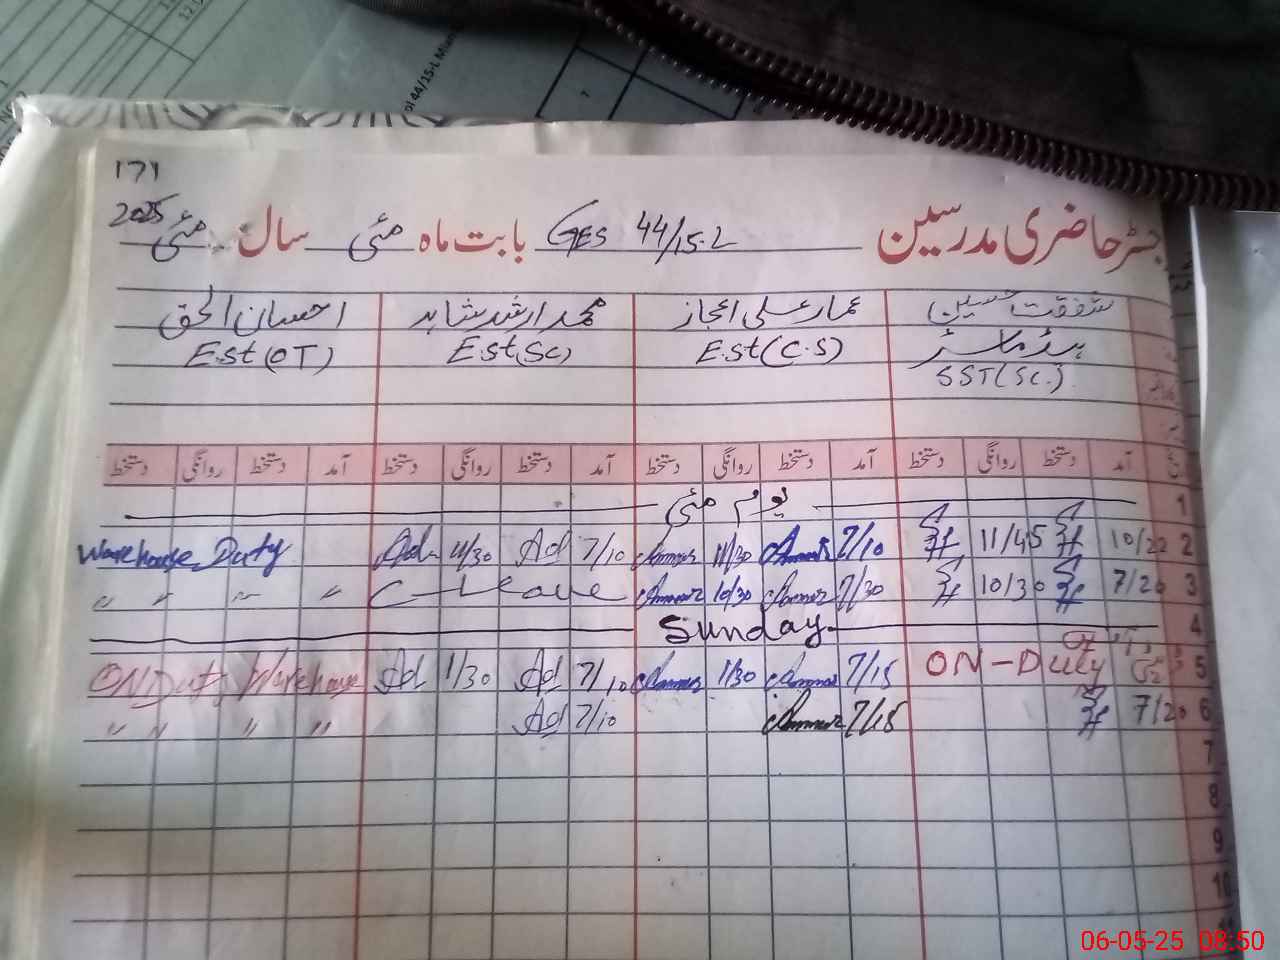 171
رجسٹر حاضری مدرسین GES 44/15.L بابت ماہ مئی سال مئی 2025
شفقت حسین عمار علی اعجاز محمد ارشد شاہد احسان الحق
ہیڈ ماسٹر E.St(C.S) E.St(SC) E.St(OT)
SST(SC.)
آمد دستخط روانگی دستخط آمد دستخط روانگی دستخط آمد دستخط روانگی دستخط آمد دستخط روانگی دستخط
1 یوم مئی
2 10/22 11/45 7/10 Ammar 11/30 Ammar 7/10 Ad 11/30 Ad Warehouse Duty
3 7/20 10/30 7/30 Ammar 10/30 Ammar C-leave " " " "
4 Sunday
5 ON-Duty 7/15 Ammar 1/30 Ammar 7/10 Ad 1/30 Ad ON Duty Warehouse
6 7/20 7/15 Ammar 7/10 Ad " " " "
7
8
9
10
11
ol 44/15-L Mian
06-05-25 08:50